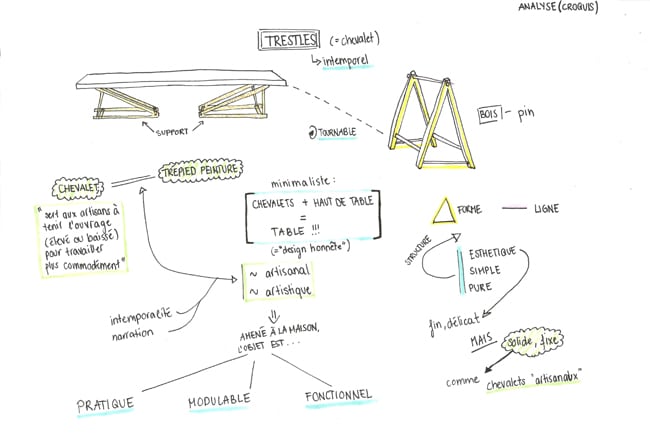 ANALYSE (CROQUIS)
TRESTLES (= chevalet)
↳ intemporel
SUPPORT
TOURNABLE
BOIS - pin
CHEVALET
TREPIED PEINTURE
"sert aux artisans à
tenir l'ouvrage
(élevé ou baissé)
pour travailler
plus commodément"
minimaliste:
CHEVALETS + HAUT DE TABLE
=
TABLE !!!
(="design honnête")
~ artisanal
~ artistique
intemporalité
narration
AMENÉ À LA MAISON,
L'OBJET EST...
PRATIQUE
MODULABLE
FONCTIONNEL
FORME
LIGNE
STRUCTURE
ESTHETIQUE
SIMPLE
PURE
fin, délicat
MAIS
solide, fixe
comme chevalets "artisanaux"